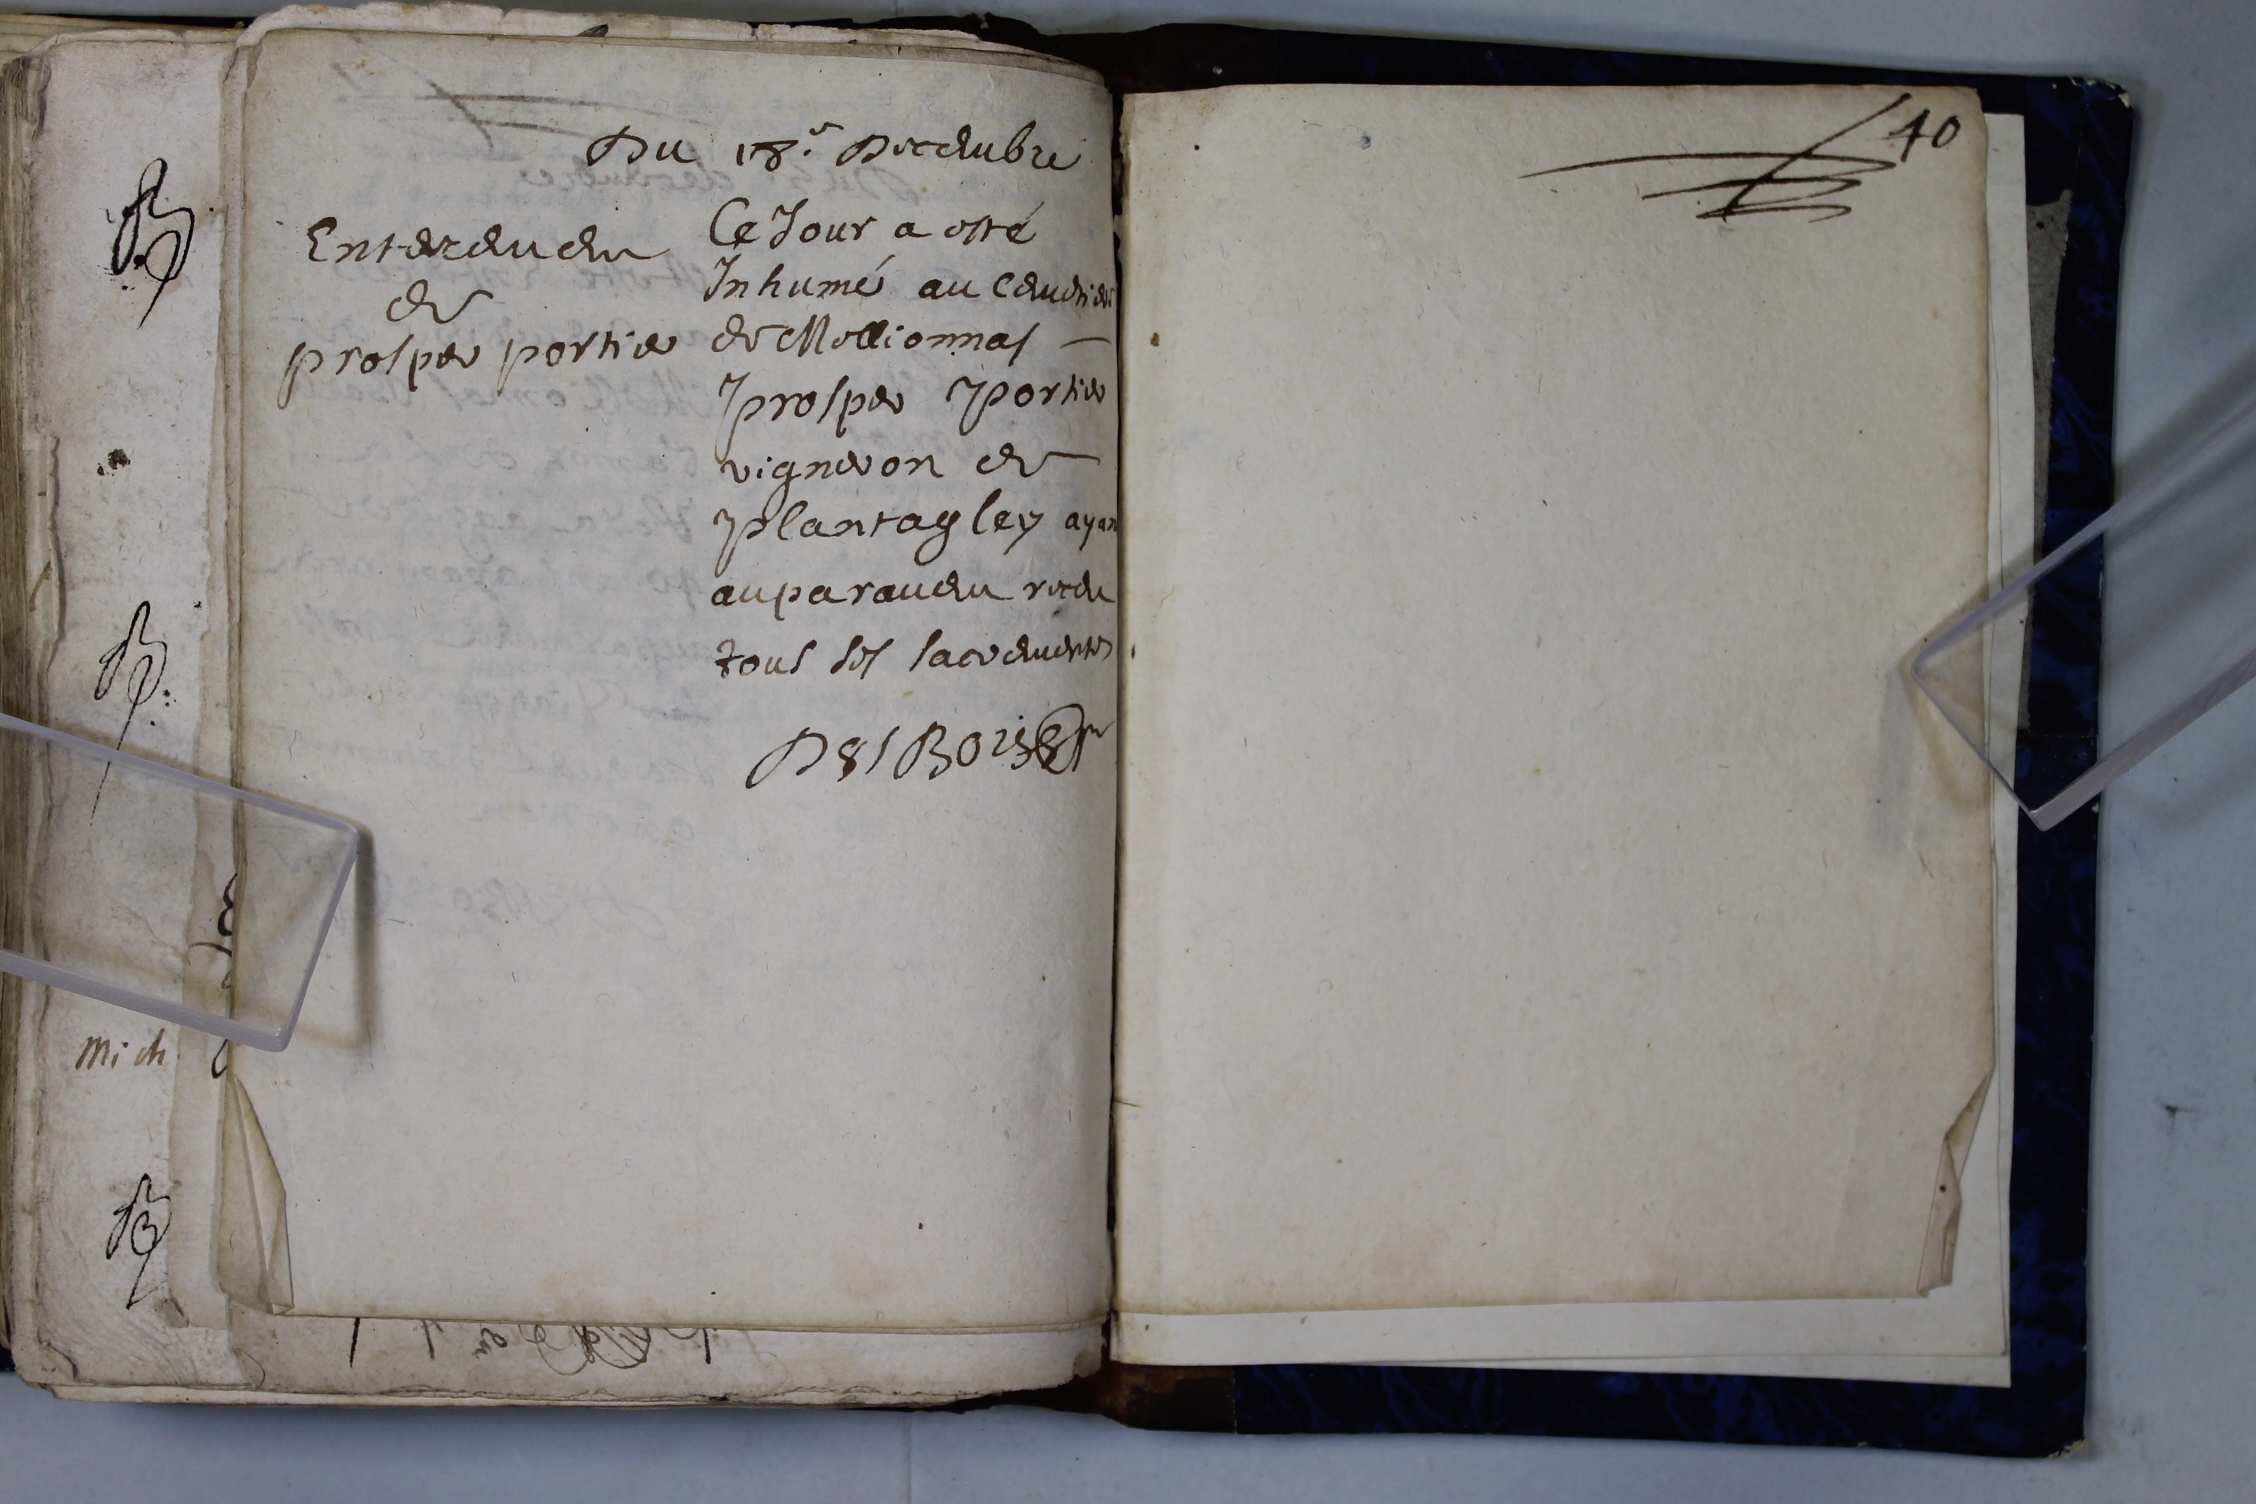 Du 18e Decembre
Enteremen
de
prosper portier
Ce Jour a esté
Inhumé au Cemetier
de Mollionnas
prosper portier
vigneron de
plantagley ayan
auparauen receu
tous ses sacrements
DesBois
40
Mich